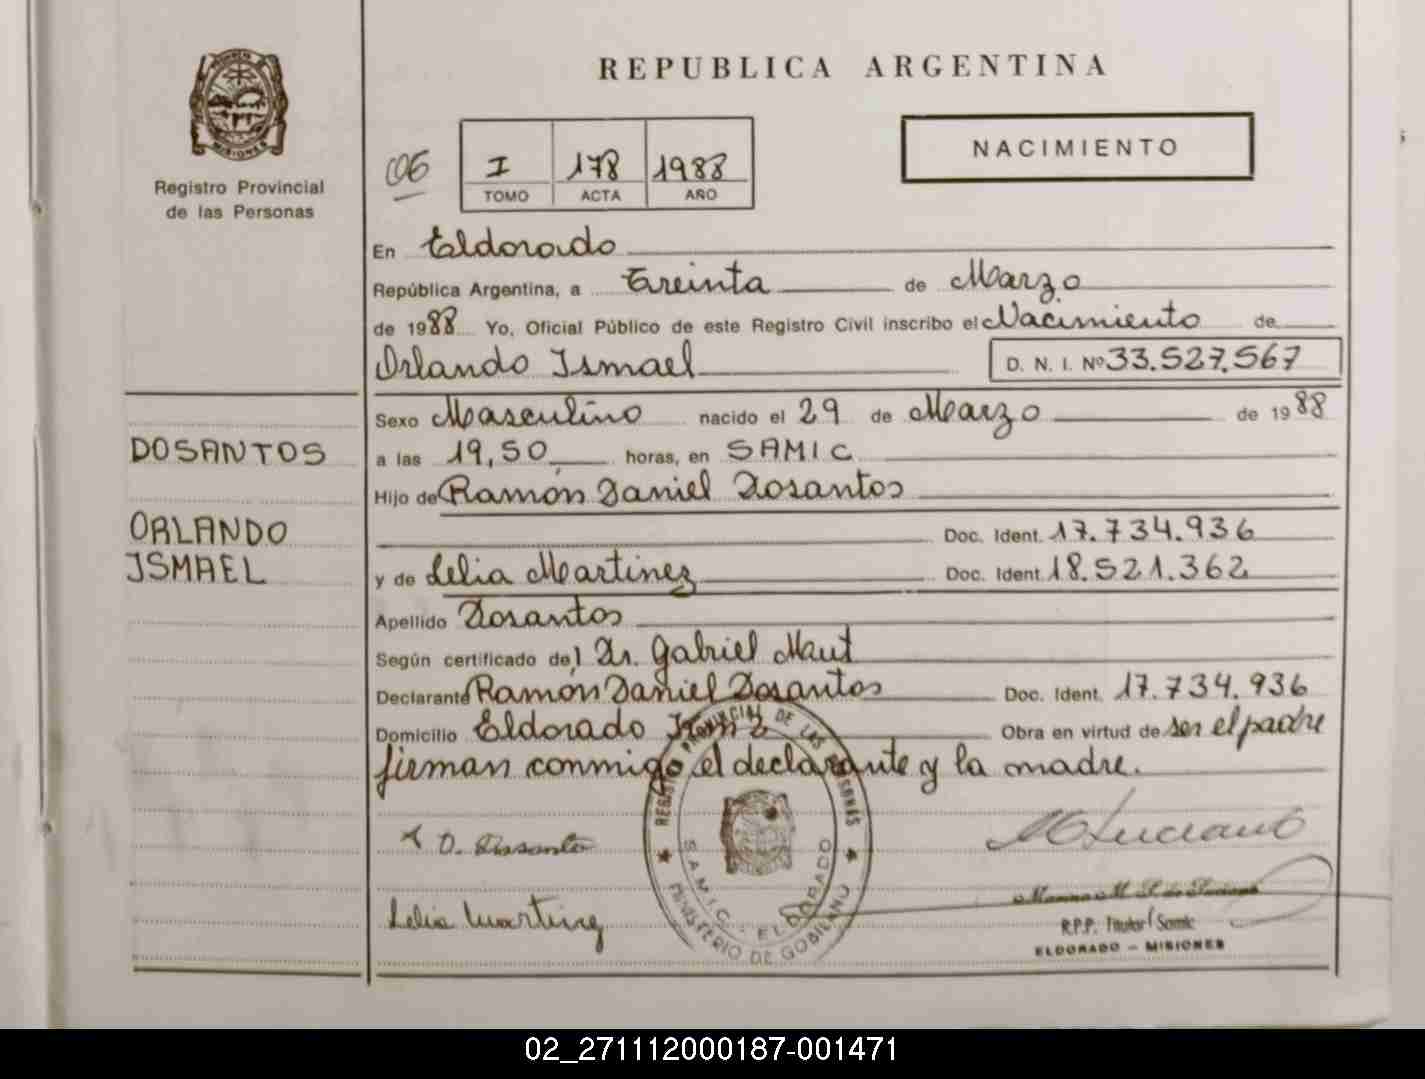 REPUBLICA ARGENTINA
PROVINCIA DE MISIONES
Registro Provincial
de las Personas
06
I 178 1988
TOMO ACTA AÑO
NACIMIENTO
En Eldorado
República Argentina, a Treinta de Marzo
de 1988 Yo, Oficial Público de este Registro Civil inscribo el Nacimiento de
Orlando Ismael D. N. I. Nº 33.527.567
Sexo Masculino nacido el 29 de Marzo de 1988
DOSANTOS
a las 19,50 horas, en SAMIC
Hijo de Ramón Daniel Dosantos
ORLANDO
ISMAEL
Doc. Ident. 17.734.936
y de Lelia Martinez Doc. Ident. 18.521.362
Apellido Dosantos
Según certificado del Dr. Gabriel Maut
Declarante Ramón Daniel Dosantos Doc. Ident. 17.734.936
Domicilio Eldorado Km 2 Obra en virtud de ser el padre
firman conmigo el declarante y la madre.
REGISTRO PROVINCIAL DE LAS PERSONAS
S.A.M.I.C. - ELDORADO
MINISTERIO DE GOBIERNO
D. Dosantos
Lelia Martinez
R.P.P. Titular Samic
ELDORADO - MISIONES
02_271112000187-001471